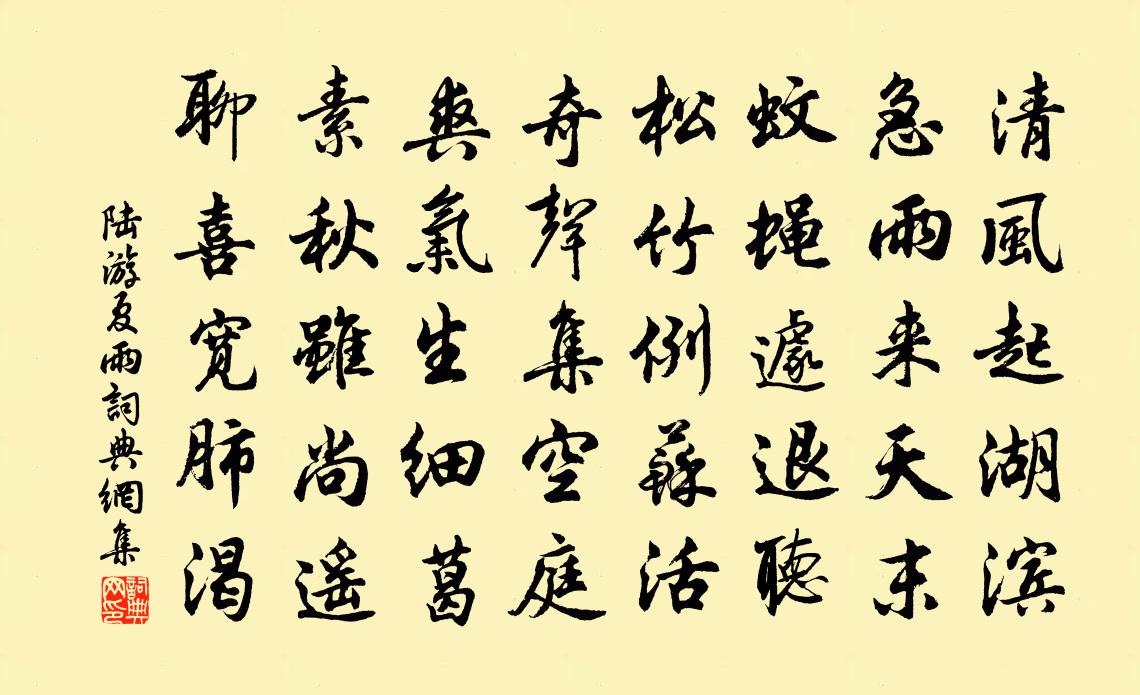 清風起湖滨
急雨来天末
蚊蝇遽退聴
松竹例蘇活
奇聲集空庭
爽氣生细葛
素秋雖尚遥
聊喜宽肺渴
陆游夏雨詞典網集
詞典网印